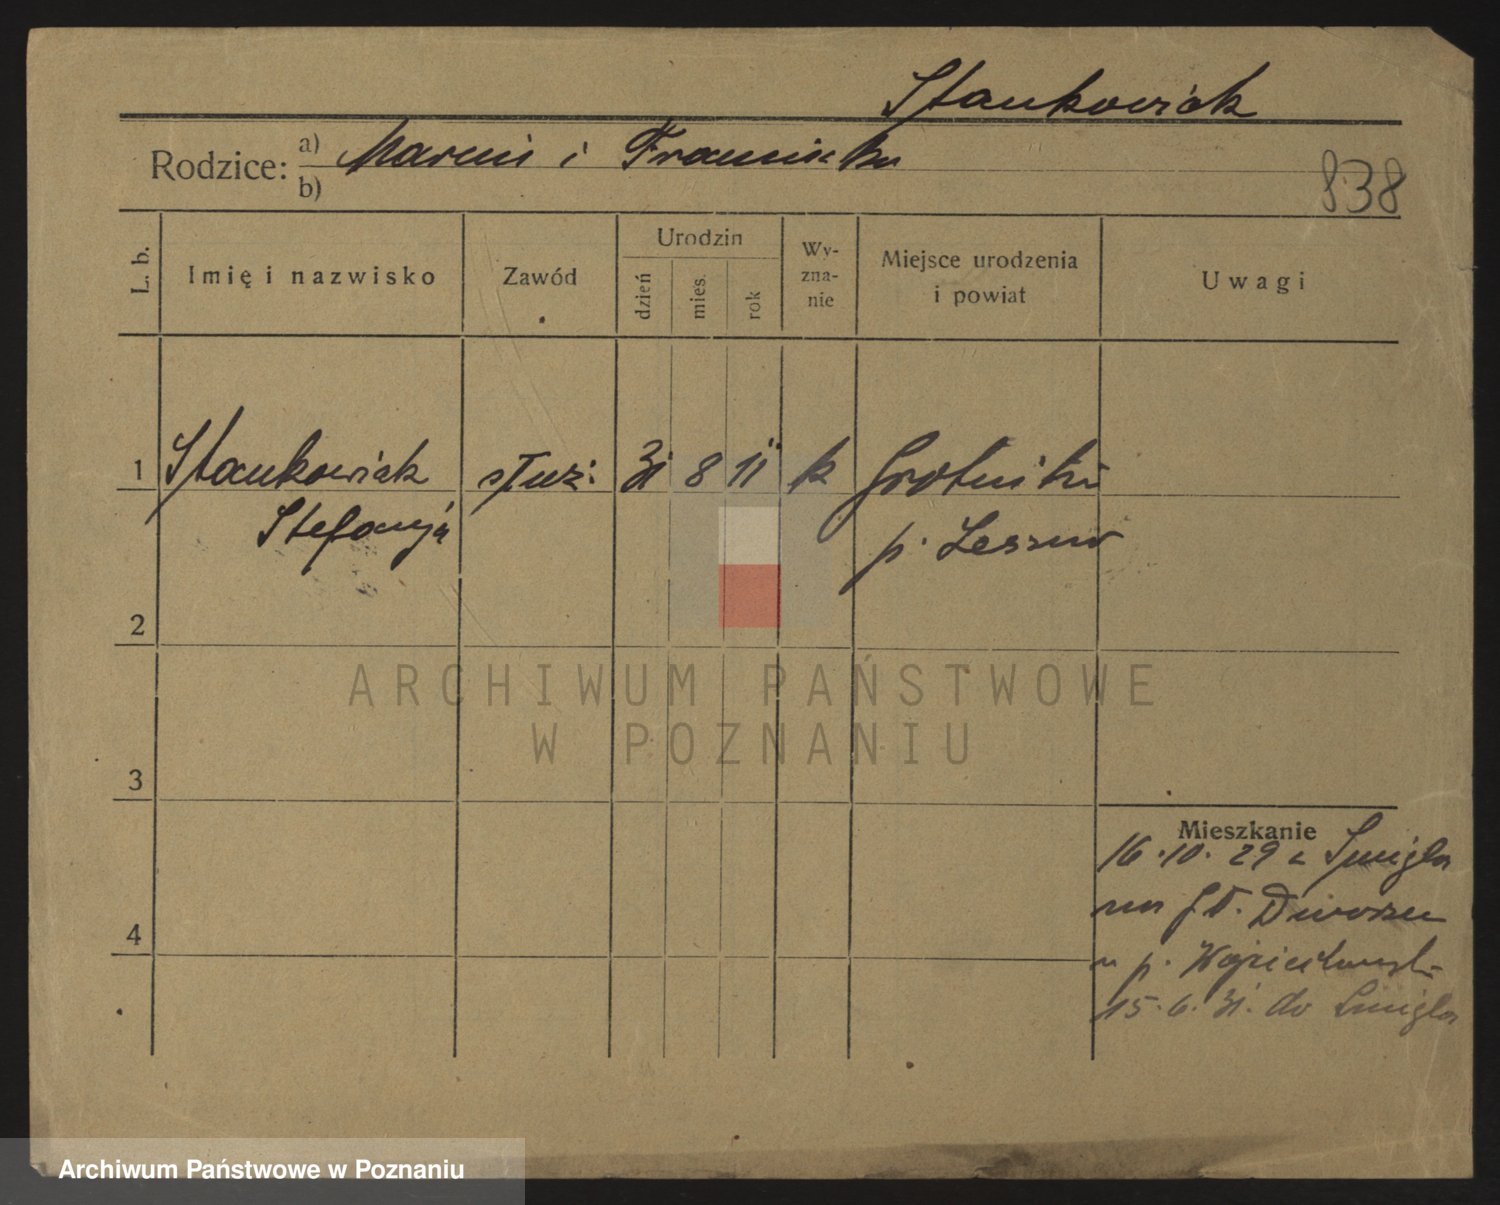 Stankowiak
Rodzice: a) Marcin i Franciszka
b)
838
L. b.
Imię i nazwisko
Zawód
Urodzin
dzień
mies.
rok
Wy-
zna-
nie
Miejsce urodzenia
i powiat
Uwagi
1 Stankowiak służ. 31 8 11 k Grotniki
Stefanja p. Leszno
2
3
4
Mieszkanie
16.10.29 z Śmigla
na Dworzec
u p. Wojciechowsk.
15.6.31. do Śmigla
ARCHIWUM PAŃSTWOWE
W POZNANIU
Archiwum Państwowe w Poznaniu